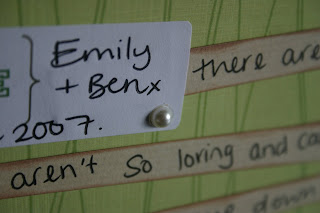 Emily
+ Benx
2007.
there are
aren't so loving and
down